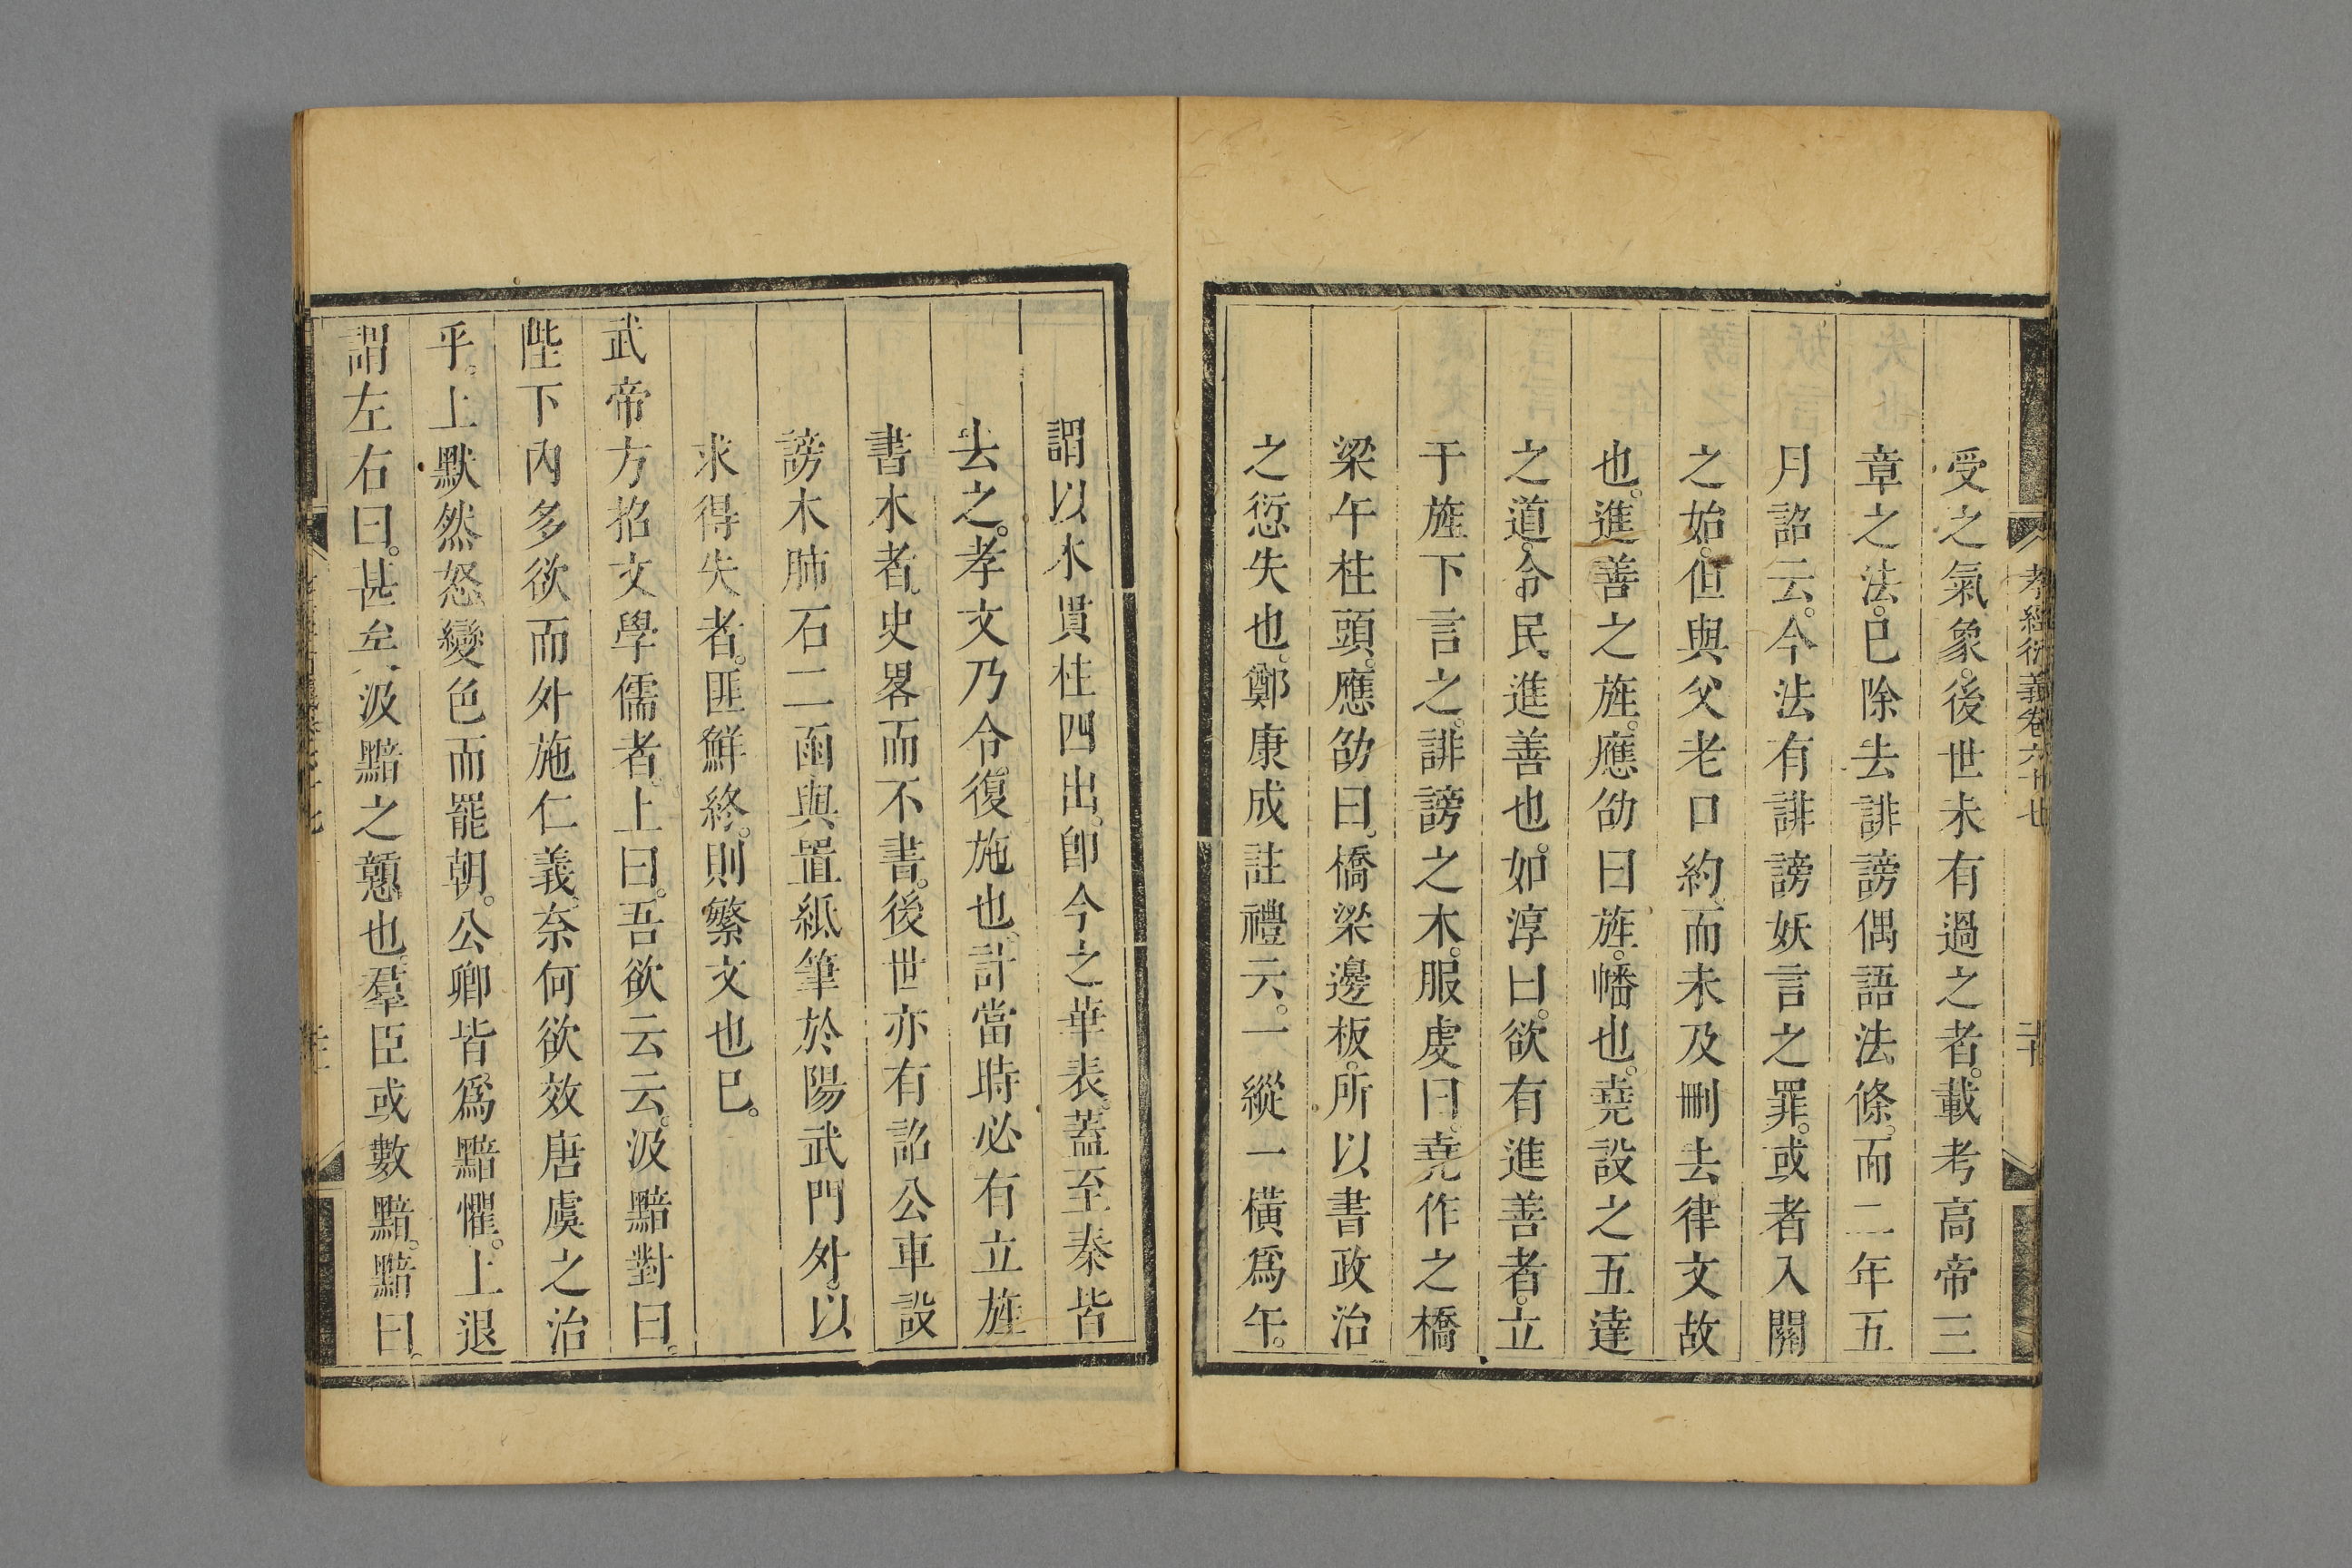 孝經衍義卷六十七
二十
受之氣象。後世未有過之者。載考高帝三
章之法。已除去誹謗偶語法條。而二年五
月詔云。今法有誹謗妖言之罪。或者入關
之始。但與父老口約。而未及刪去律文故
也。進善之旌。應劭曰旌。幡也。堯設之五達
之道。令民進善也。如淳曰。欲有進善者。立
于旌下言之。誹謗之木。服虔曰。堯作之橋
梁午柱頭。應劭曰。橋梁邊板。所以書政治
之愆失也。鄭康成註禮云。一縱一橫爲午。
謂以木貫柱四出。卽今之華表。蓋至秦皆
去之。孝文乃令復施也。計當時必有立旌
書木者。史畧而不書。後世亦有詔公車設
謗木肺石二函與置紙筆於陽武門外。以
求得失者。匪鮮終。則繁文也已。
武帝方招文學儒者。上曰。吾欲云云。汲黯對曰。
陛下內多欲而外施仁義。奈何欲效唐虞之治
乎。上默然怒變色而罷朝。公卿皆爲黯懼。上退
謂左右曰。甚矣。汲黯之戇也。羣臣或數黯。黯曰。